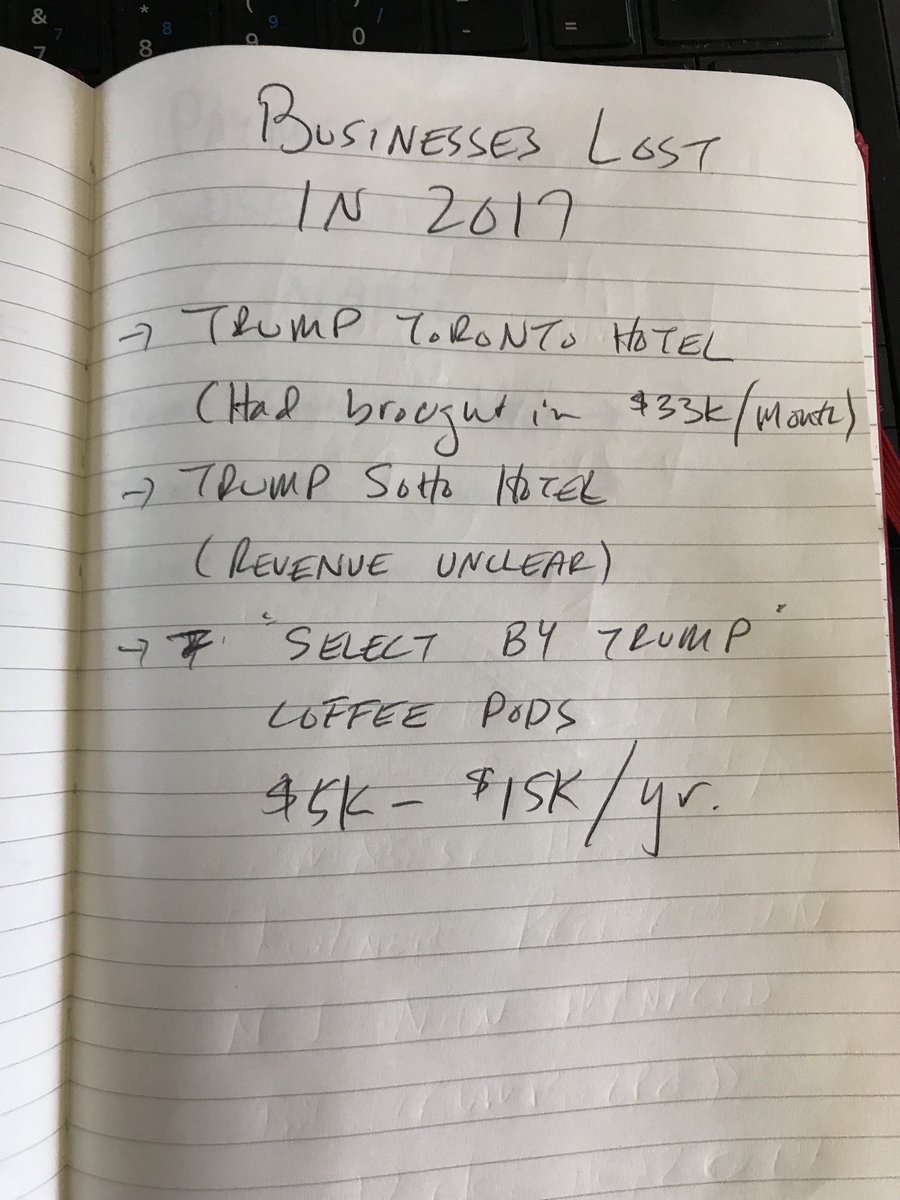 & 7 * 8 8 ( 9 9 ) / 0 - =
7
BUSINESSES LOST
IN 2017
→ TRUMP TORONTO HOTEL
(Had brought in $33K/month)
→ TRUMP SOHO HOTEL
(REVENUE UNCLEAR)
→ "SELECT BY TRUMP"
COFFEE PODS
$5K – $15K/yr.